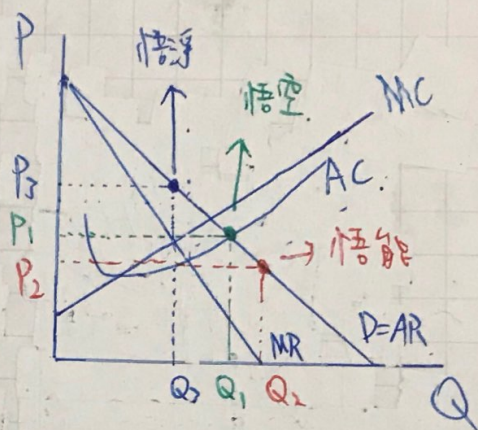 P
悟净
悟空
MC
AC
P3
P1
P2
悟能
D=AR
MR
Q3
Q1
Q2
Q